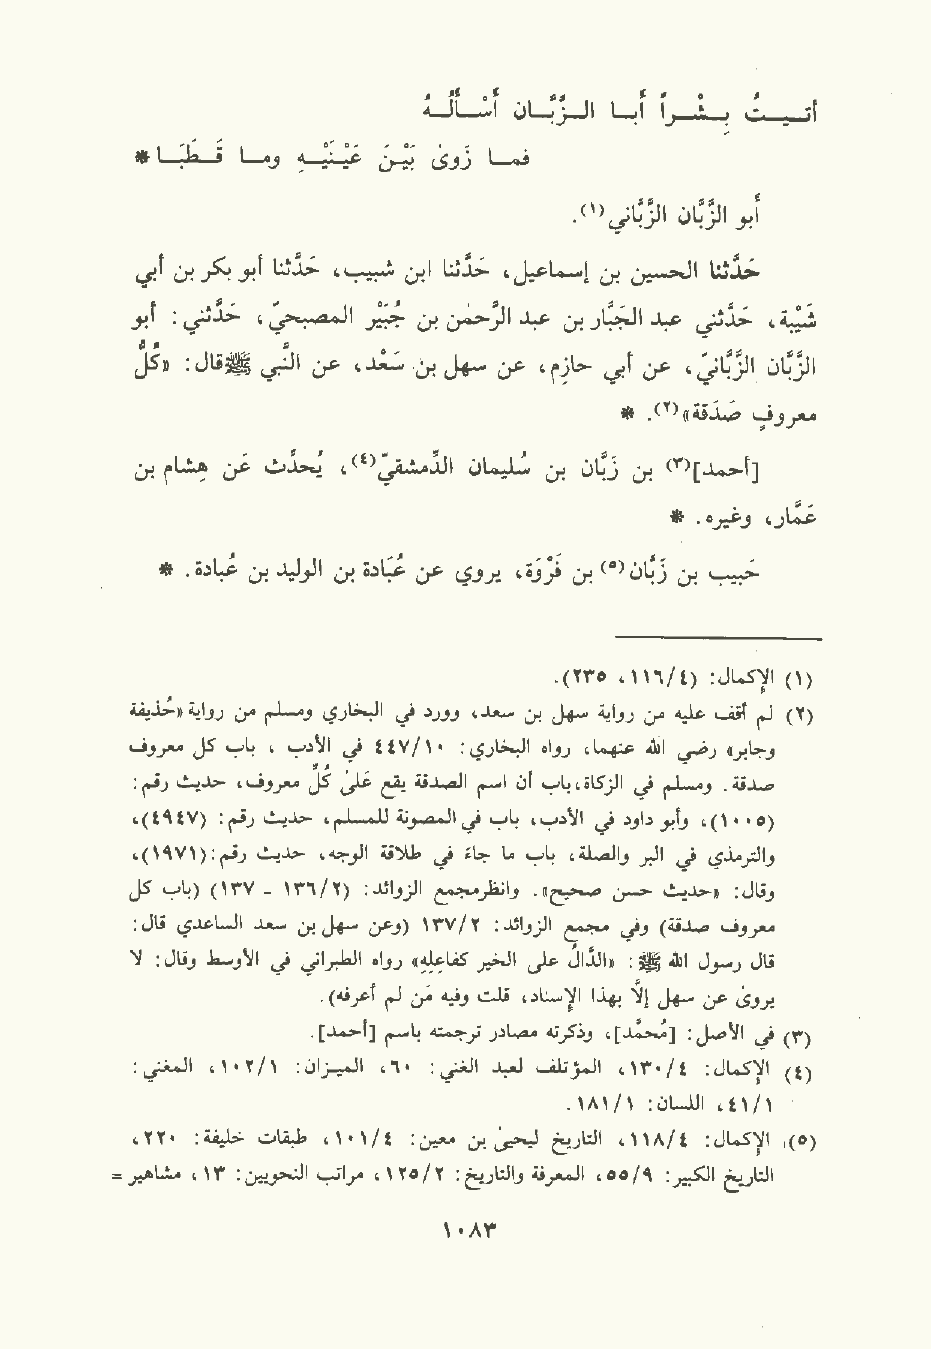 أتـــيـــتُ بِـــشْـــراً أبـــا الـــزَّبَّـــان أَسْـــأَلُـــهُ
فمـــا زَوىٰ بَيْـنَ عَيْنَيْـهِ ومـــا قَـــطَـــبَـــا *
أبو الزَّبَّان الزَّبَّاني(١).
حَدَّثنا الحسين بن إسماعيل، حَدَّثنا ابن شبيب، حَدَّثنا أبو بكر بن أبي
شَيْبَة، حَدَّثني عبد الجَبَّار بن عبد الرَّحمٰن بن جُبَيْر المصبحيّ، حَدَّثني: أبو
الزَّبَّان الزَّبَّانيّ، عن أبي حازِم، عن سهل بن سَعْد، عن النَّبي ﷺ قال: «كُلُّ
معروفٍ صَدَقة»(٢). *
[أحمد](٣) بن زَبَّان بن سُليمان الدِّمشقيّ(٤)، يُحدِّث عَن هِشام بن
عَمَّار، وغيره. *
حَبيب بن زَبَّان(٥) بن فَرْوَة، يروي عن عُبَادة بن الوليد بن عُبادة. *
(١) الإكمال: (٤/ ١١٦، ٢٣٥).
(٢) لم أقف عليه من رواية سهل بن سعد، وورد في البخاري ومسلم من رواية «حُذيفة
وجابر» رضي الله عنهما، رواه البخاري: ١٠/ ٤٤٧ في الأدب، باب كل معروف
صدقة. ومسلم في الزكاة، باب أن اسم الصدقة يقع عَلىٰ كُلّ معروف، حديث رقم:
(١٠٠٥)، وأبو داود في الأدب، باب في المعونة للمسلم، حديث رقم: (٤٩٤٧)،
والترمذي في البر والصلة، باب ما جاءَ في طلاقة الوجه، حديث رقم: (١٩٧١)،
وقال: «حديث حسن صحيح». وانظرمجمع الزوائد: (٢/ ١٣٦ - ١٣٧) (باب كل
معروف صدقة) وفي مجمع الزوائد: ٢/ ١٣٧ (وعن سهل بن سعد الساعدي قال:
قال رسول الله ﷺ: «الدَّالُ على الخير كفاعلِهِ» رواه الطبراني في الأوسط وقال: لا
يروىٰ عن سهل إلَّا بهذا الإِسناد، قلت وفيه مَن لم أعرفه).
(٣) في الأصل: [مُحمَّد]، وذكرته مصادر ترجمته باسم [أحمد].
(٤) الإكمال: ٤/ ١٣٠، المؤتلف لعبد الغني: ٦٠، الميـزان: ١/ ١٠٢، المغني:
١/ ٤١، اللسان: ١/ ١٨١.
(٥) الإكمال: ٤/ ١١٨، التاريخ ليحيىٰ بن معين: ٤/ ١٠١، طبقات خليفة: ٢٢٠،
التاريخ الكبير: ٩/ ٥٥، المعرفة والتاريخ: ٢/ ١٢٥، مراتب النحويين: ١٣، مشاهير =
١٠٨٣